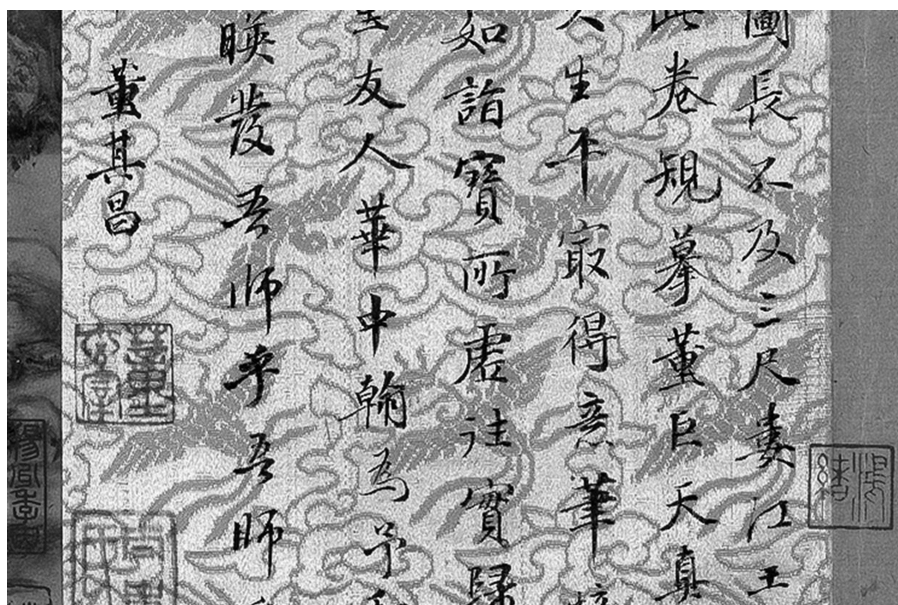 圖長不及三尺婁江王
此卷規摹董巨天真
人生平㝡得意筆
如詣寶所虛往實歸
友人華中翰爲予
暎發吾師乎吾師
董其昌